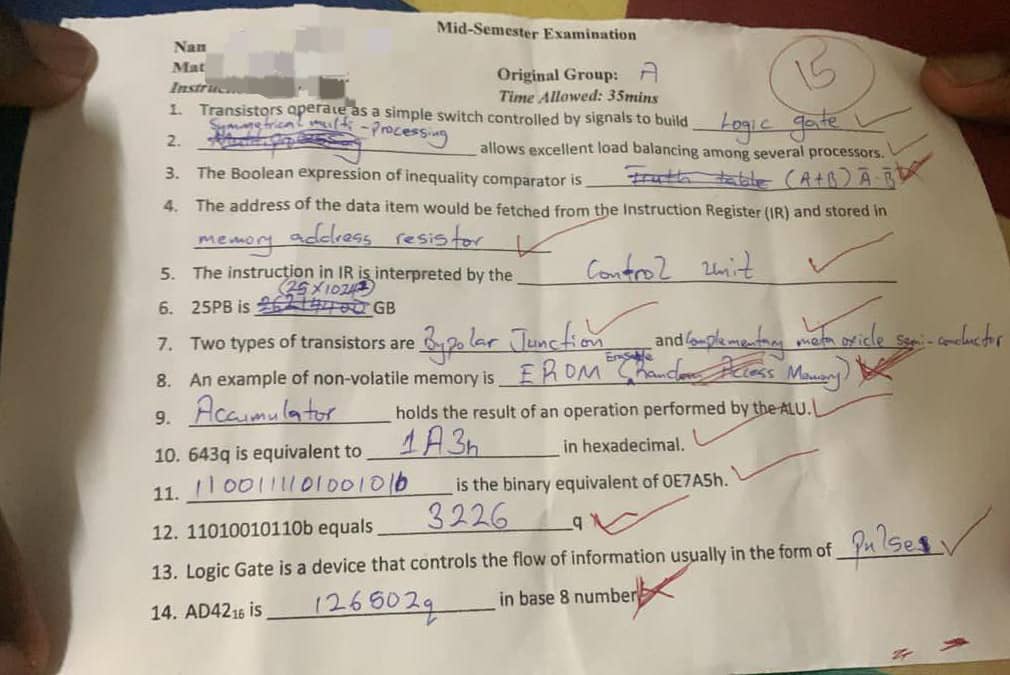 Mid-Semester Examination
Nan
Mat
Original Group: A
15
Time Allowed: 35mins
1. Transistors operate as a simple switch controlled by signals to build Logic gate
2. Symmetrical multi-Processing allows excellent load balancing among several processors.
3. The Boolean expression of inequality comparator is Truth table (A+B) Ā·B̄
4. The address of the data item would be fetched from the Instruction Register (IR) and stored in
memory address resistor
5. The instruction in IR is interpreted by the Control unit
6. 25PB is 26214400 GB
7. Two types of transistors are Bypolar Junction and Complementary meta oxide Semi-conductor
8. An example of non-volatile memory is EROM (Random Access Memory)
9. Accumulator holds the result of an operation performed by the ALU.
10. 643q is equivalent to 1A3h in hexadecimal.
11. 1100111101001010b is the binary equivalent of 0E7A5h.
12. 11010010110b equals 3226 q
13. Logic Gate is a device that controls the flow of information usually in the form of Pulses
14. AD42₁₆ is 126502q in base 8 number